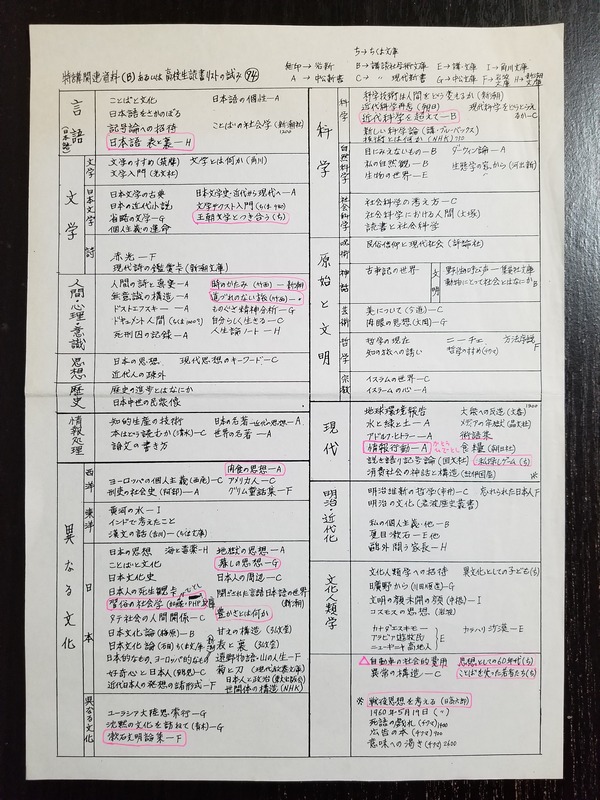 ち→ちくま文庫
無印→岩新 B→講談社学術文庫 E→講・文庫 I→角川文庫
特講関連資料(B)あるいは高校生読書リストの試み (94) A→中公新書 C→〃現代新書 G→中公文庫 F→岩波文庫 H→新潮文庫
言語(日本語)
ことばと文化 日本語の個性—A
日本語をさかのぼる
記号論への招待 ことばの社会学(新潮社)
日本語 表と裏—H
文学
文学
文学のすすめ(筑摩) 文学とは何か(角川)
文学入門(光文社)
日本文学
日本文学の古典 日本文学史・近代から現代へ—A
日本の近代小説 文学テクスト入門(ちくま)
省略の文学—G 王朝文学とつき合う(ち)
個人主義の運命
詩
赤光—F
現代詩の鑑賞(新潮文庫)
人間・心理・意識
人間の詩と真実—A 時のかたみ(新潮)
無意識の構造—A 道づれのない旅
ドストエフスキー—A ものぐさ精神分析—G
ドキュメント人間 自分らしく生きる—C
死刑囚の記録—A 人生論ノート—H
思想
日本の思想 現代思想のキーワード—C
近代人の疎外
歴史
歴史の進歩とはなにか
日本中世の民衆像
情報処理
知的生産の技術 日本の名著—近代の思想—A
本はどう読むか(清水)—C 世界の名著—A
論文の書き方
異なる文化
西洋
肉食の思想—A
ヨーロッパの個人主義(西尾)—C アメリカ人—C
刑吏の社会史(阿部)—A グリム童話集—F
東洋
黄河の水—I
インドで考えたこと
漢文の話(吉川)—(ちくま文庫)
日本
日本の思想 海と毒薬—H 地獄の思想—A
ことばと文化 暮しの思想—G
日本文化史 日本人の周辺—C
日本人の死生観 閉された言語・日本語の世界(新潮)
習俗の社会学 豊かさとは何か
タテ社会の人間関係—C
日本文化論(梅原)—B 甘えの構造(弘文堂)
日本文化論 表と裏(弘文堂)
日本的なもの、ヨーロッパ的なもの 遠野物語・山の人生—F
好奇心と日本人(鶴見)—C 菊と刀(現代教養文庫)
近代日本人の発想の諸形式—F 日本人と政治
世間体の構造(NHK)
異なる文化
ユーラシア大陸思索行—G
沈黙の文化を訪ねて(青木)—G
漱石文明論集—F
科学
科学
科学技術は人間をどう変えるか(新潮)
近代科学再考(朝日) 現代科学をどうとらえるか—C
近代科学を超えて—B
新しい科学論(講・ブルーバックス)
技術とは何か(NHK)
自然科学
目にみえないもの—B ダーウィン論—A
私の自然観—B 生態学の窓から(河出新)
生物の世界—E
社会科学
社会科学の考え方—C
社会科学における人間(大塚)
読書と社会科学
原始と文明
呪術
民俗信仰と現代社会(評論社)
神話
古事記の世界
文明
野生の呼び声—集英社文庫
動物にとって社会とはなにか—B
芸術
美について(今道)—C
肉眼の思想(大岡)—G
哲学
哲学の現在 ニーチェ 方法序説F
知の旅への誘い 哲学のすすめ
宗教
イスラムの世界—C
イスラームの心—A
現代
地球環境報告 大衆への反逆(文春)
水と緑と土—A メディアの牢獄(晶文社)
アドルフ・ヒトラー—A 術語集
情報行動—A 食糧(朝日社)
説き語り記号論(国文社) 私探しゲーム(ち)
消費社会の神話と構造(紀伊国屋) ※
明治・近代化
明治維新の哲学(市井)—C 忘れられた日本人F
明治の文化(岩波歴史叢書)
私の個人主義・他—B
夏目漱石・E他
鴎外 闘う家長—H
文化人類学
文化人類学への招待 異文化としての子ども(ち)
日曠野から(川田順造)—G
文明の顔未開の顔(中根)—I
コスモスの思想(岩波)
カナダ=エスキモー— カラハリ砂漠—E
アラビア遊牧民 E
ニューギニア高地人
△自動車の社会的費用 思想としての60年代(ち)
異常の構造—C ことばを失った若者たち(ち)
※戦後思想を考える(日高六郎)
1960年5月19日(〃)
死語の戯れ(チクマ)
広告の本(チクマ)
意味への渇き(チクマ)2600